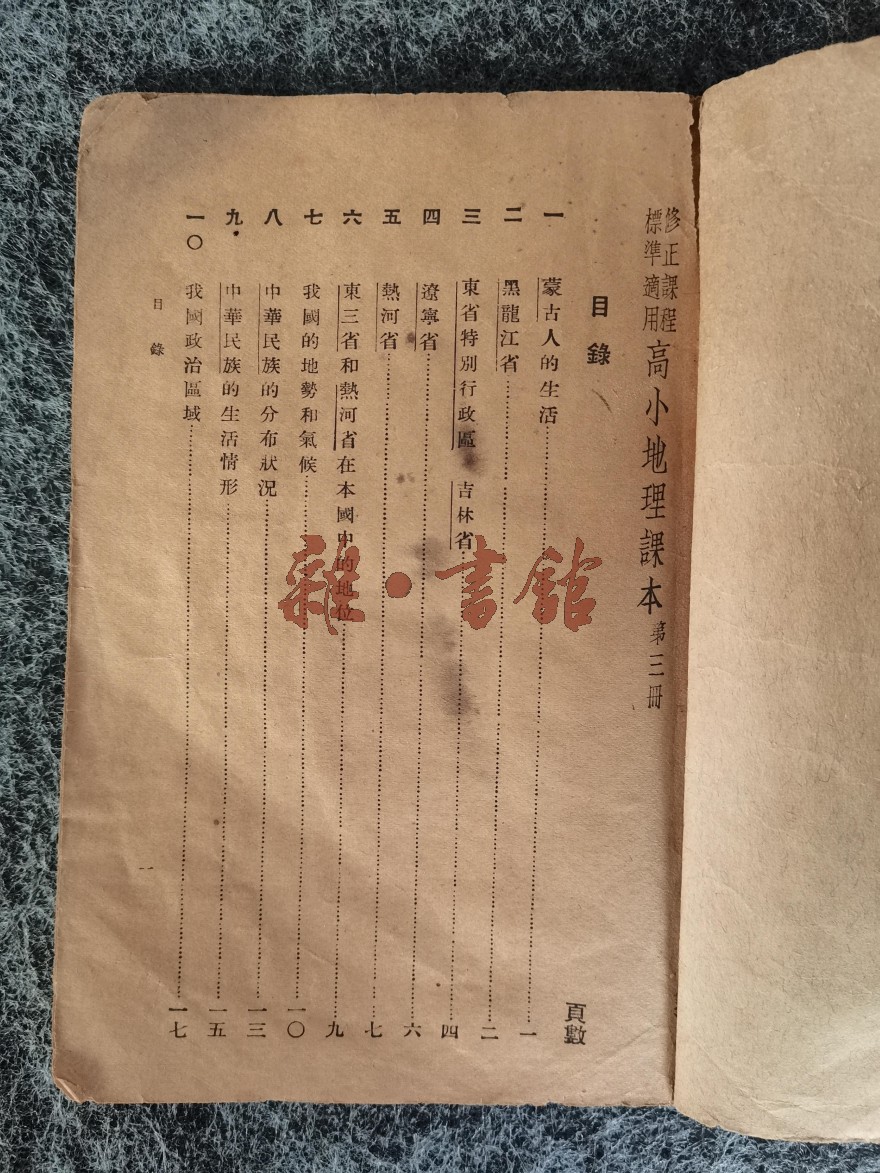 修正課程
標準適用
高小地理課本 第三冊
目錄
頁數
一 蒙古人的生活 一
二 黑龍江省 二
三 東省特別行政區 吉林省 四
四 遼寧省 六
五 熱河省 七
六 東三省和熱河省在本國中的地位 九
七 我國的地勢和氣候 一〇
八 中華民族的分布狀況 一三
九 中華民族的生活情形 一五
一〇 我國政治區域 一七
目錄
一
雜·書館